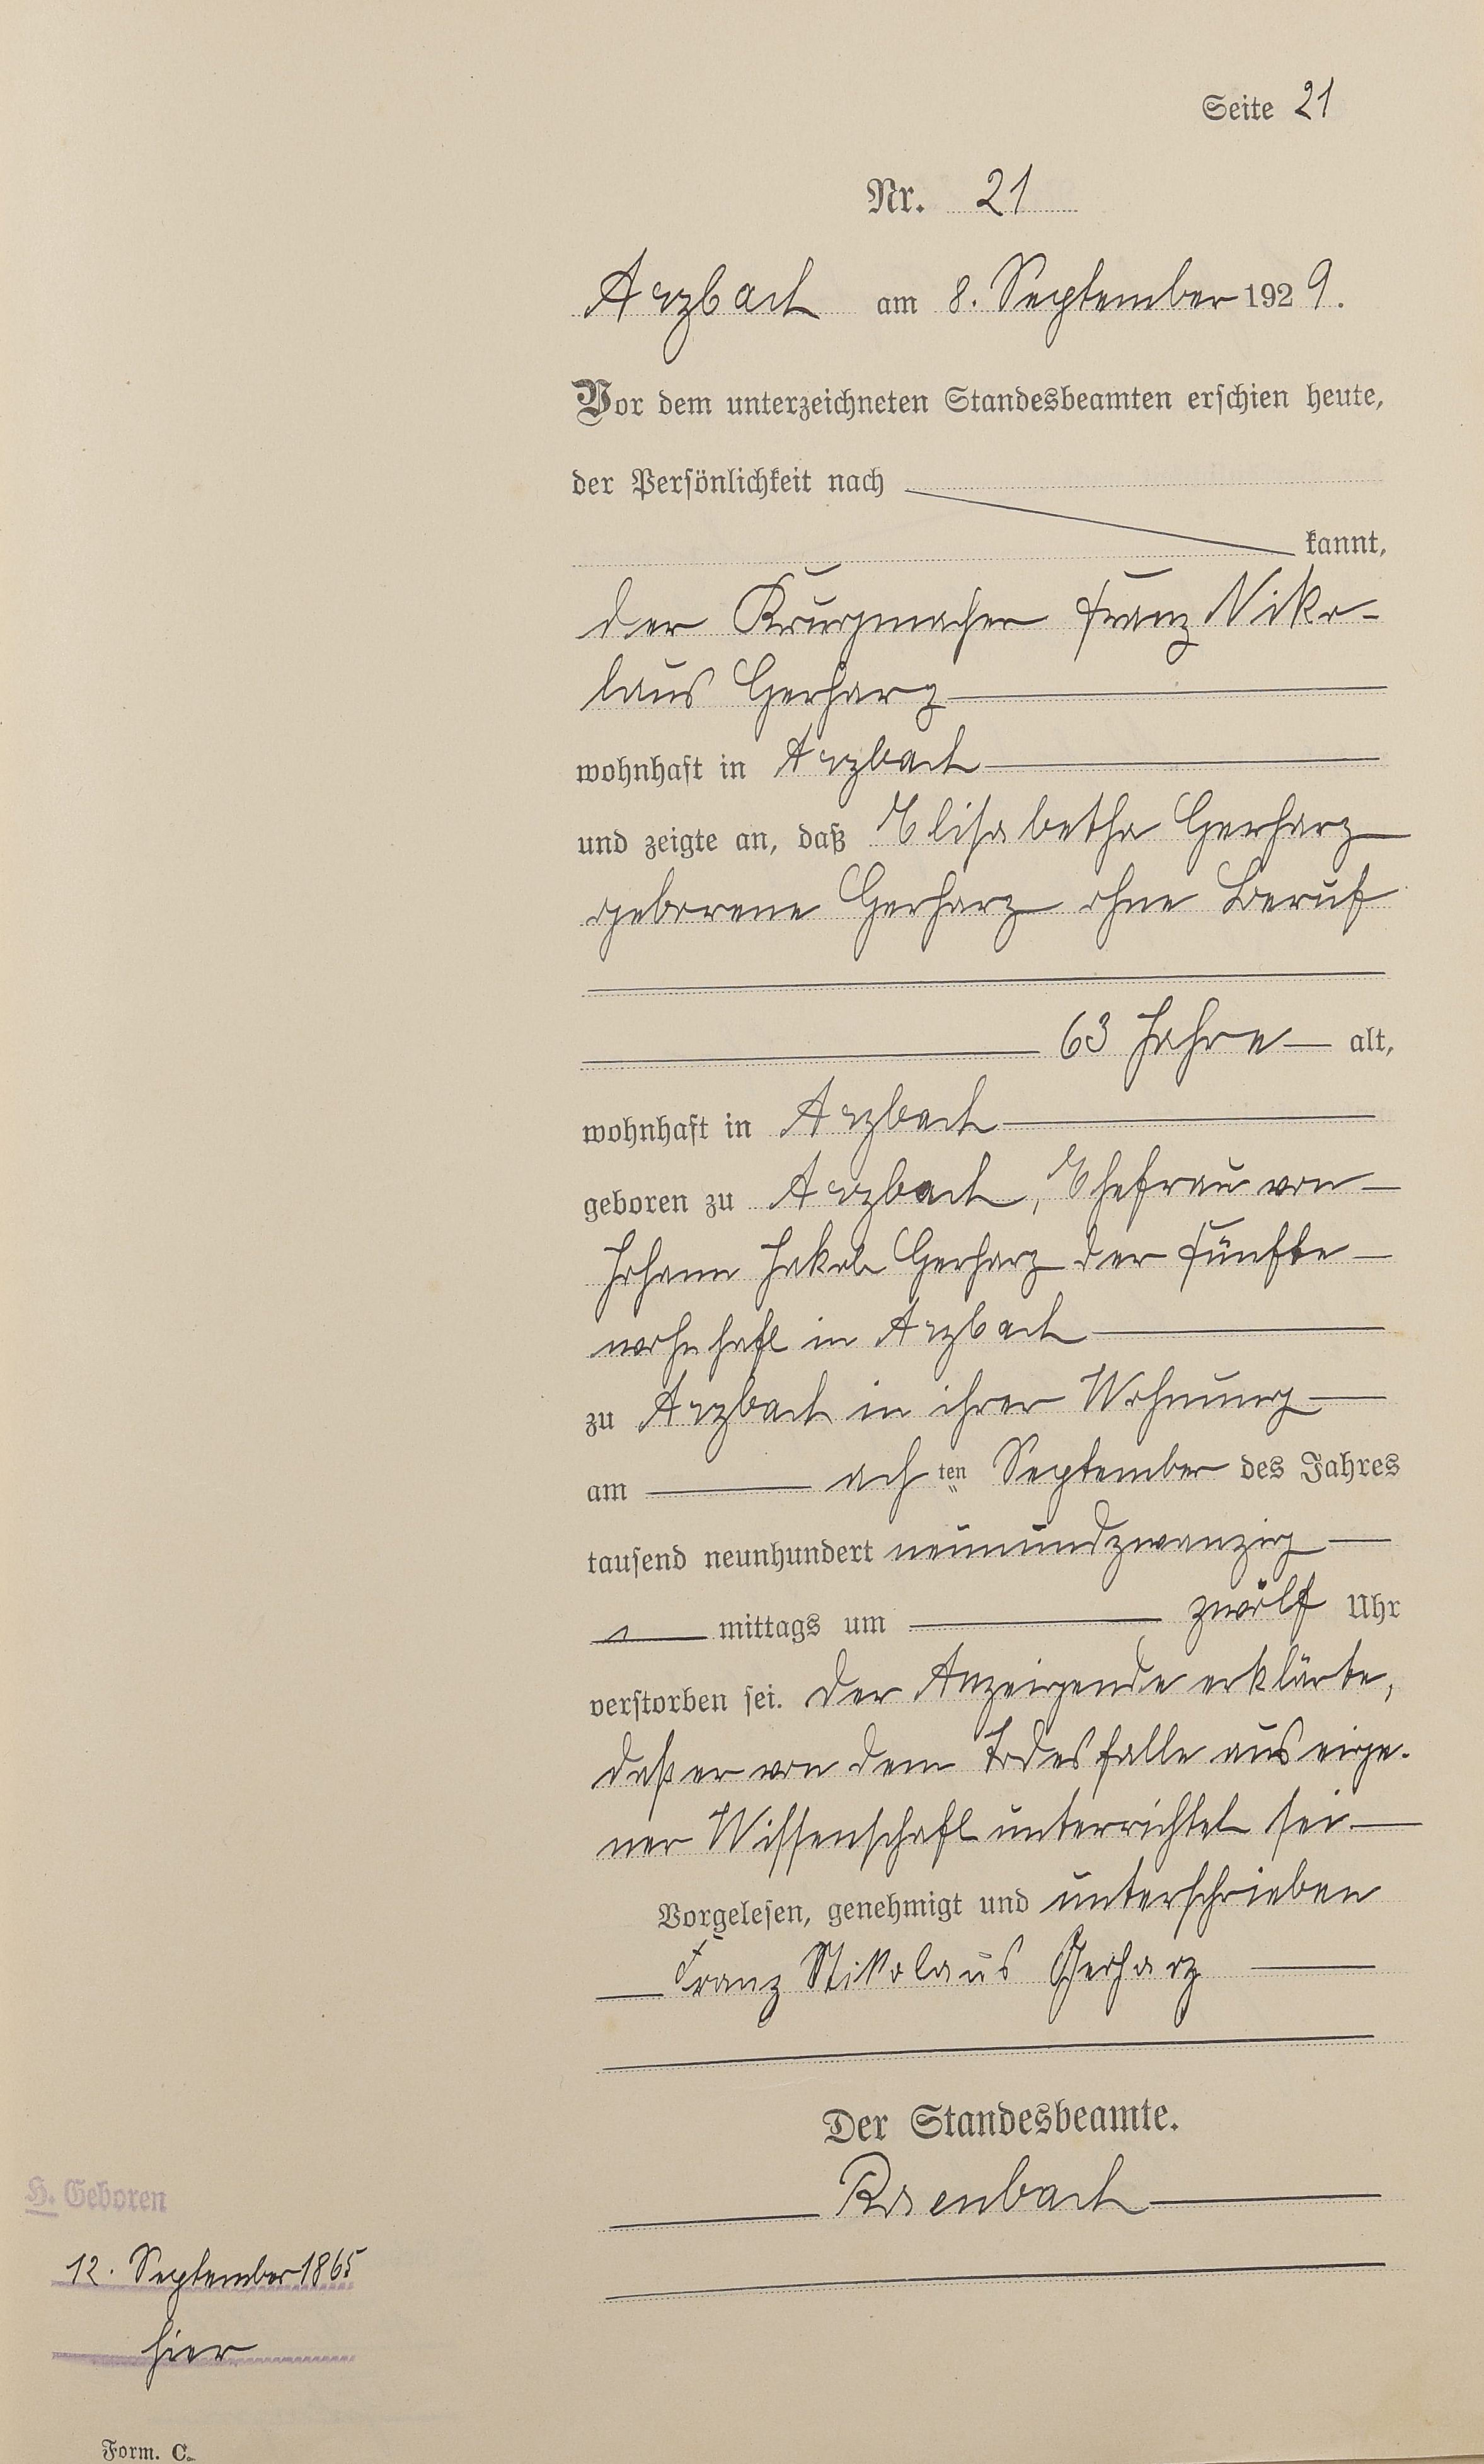 Seite 21
Nr. 21
Arzbach am 8. September 1929.
Vor dem unterzeichneten Standesbeamten erschien heute,
der Persönlichkeit nach
kannt,
der Krugmacher Franz Niko-
laus Gerharz
wohnhaft in Arzbach
und zeigte an, daß Elisabetha Gerharz
geborene Gerharz ohne Beruf
63 Jahre alt,
wohnhaft in Arzbach
geboren zu Arzbach, Ehefrau von
Johann Jakob Gerharz der fünfte
wohnhaft in Arzbach
zu Arzbach in ihrer Wohnung
am achten September des Jahres
tausend neunhundert neunundzwanzig
mittags um zwölf Uhr
verstorben sei. Der Anzeigende erklärte,
daß er von dem Todesfalle aus eige-
ner Wissenschaft unterrichtet sei
Vorgelesen, genehmigt und unterschrieben
Franz Nikolaus Gerharz
Der Standesbeamte.
H. Geboren
12. September 1865
hier
Form. C.